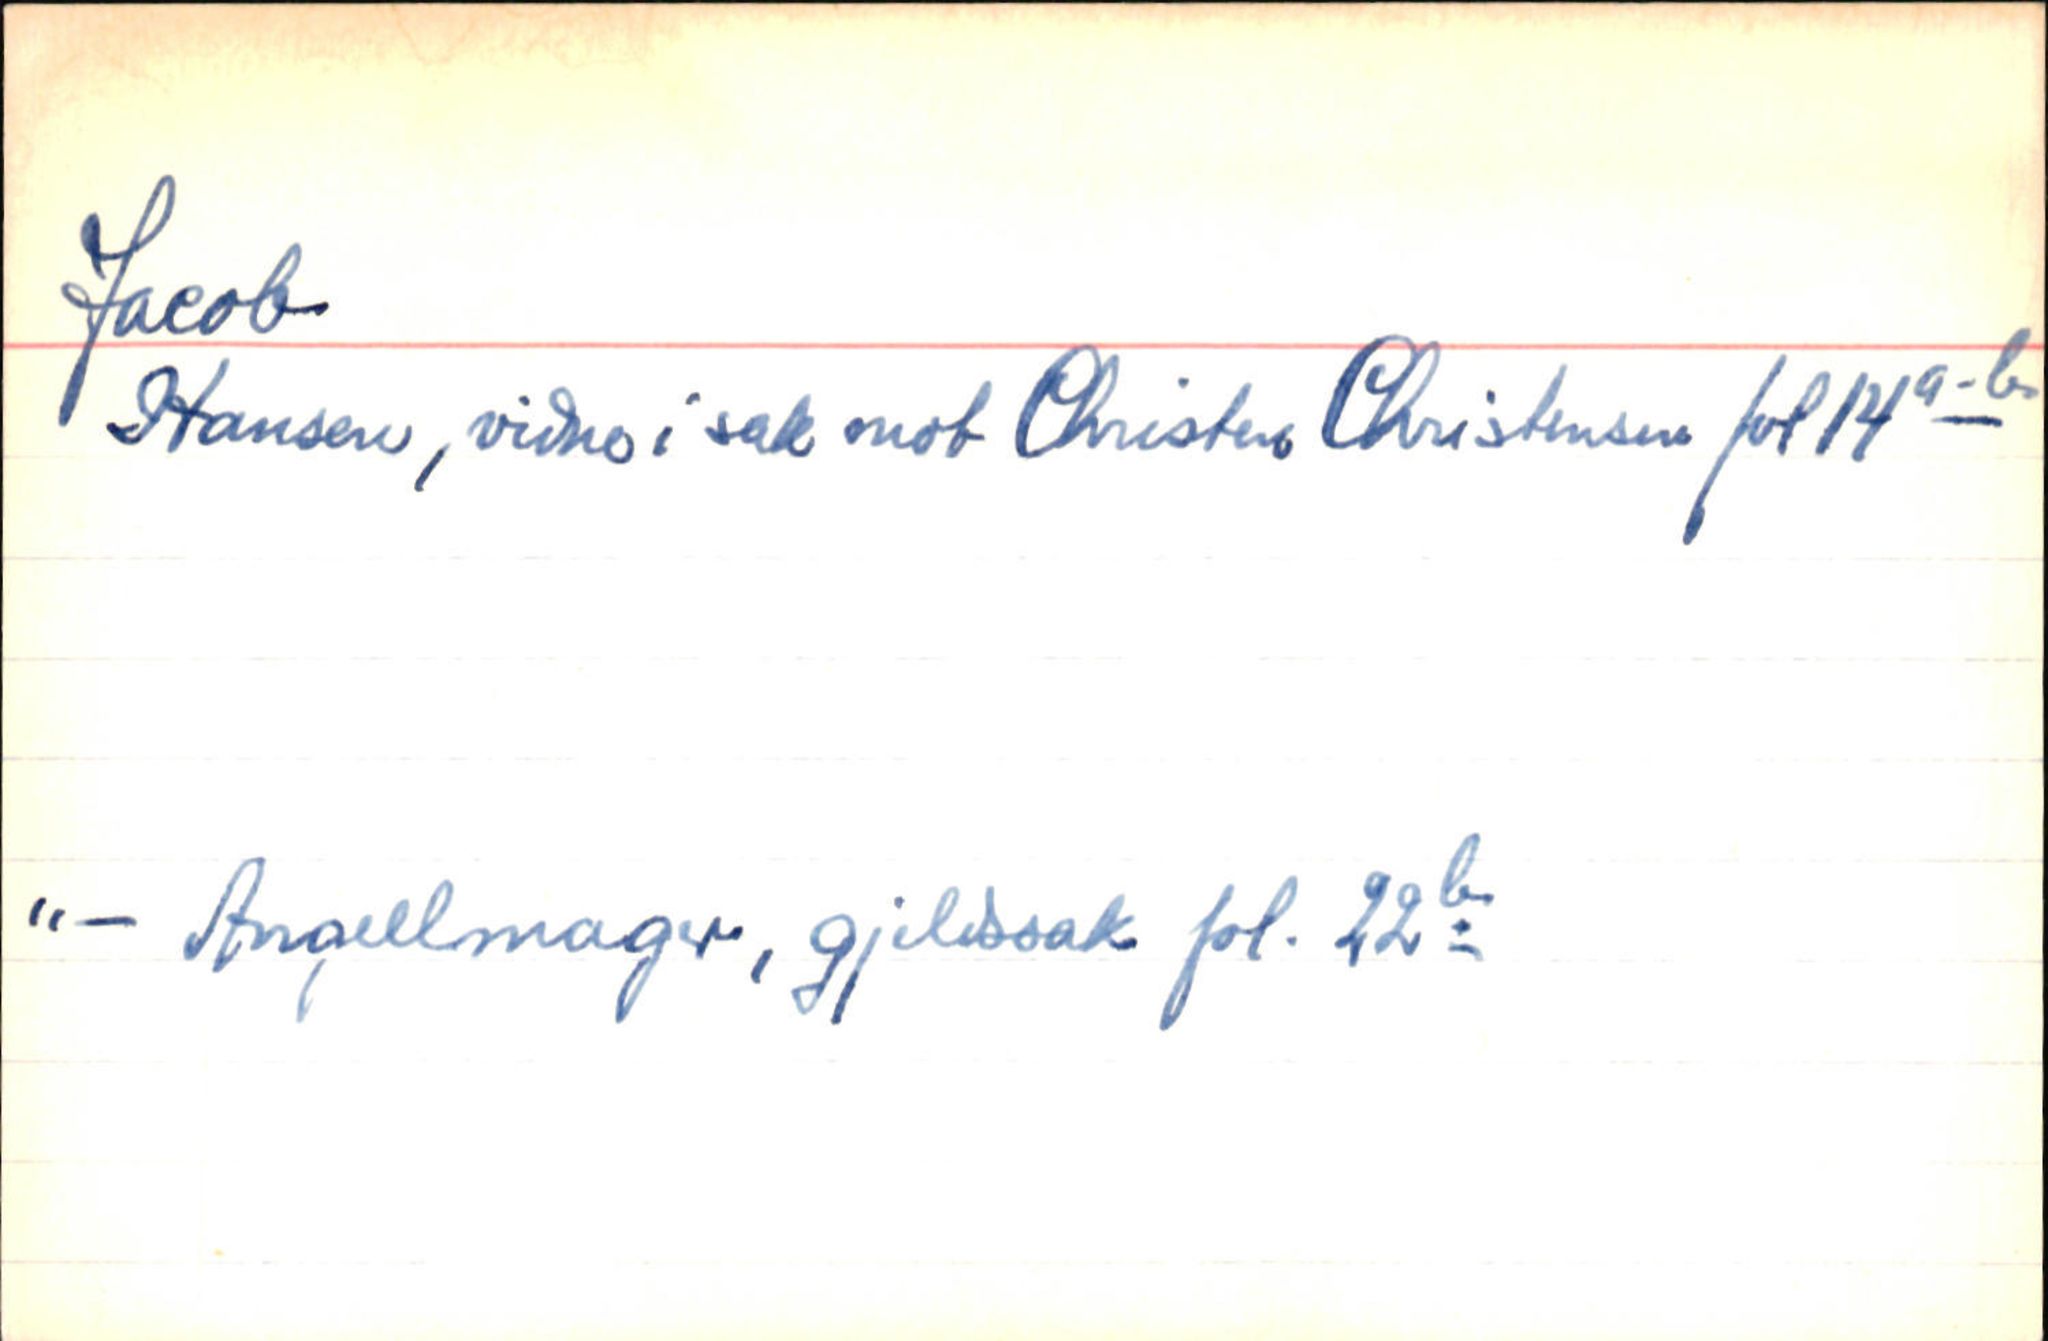 Jacob
Hansen, vidne i sak mot Christen Christensen fol 14 a-b
"— Angellmager, gjeldssak fol. 22 b